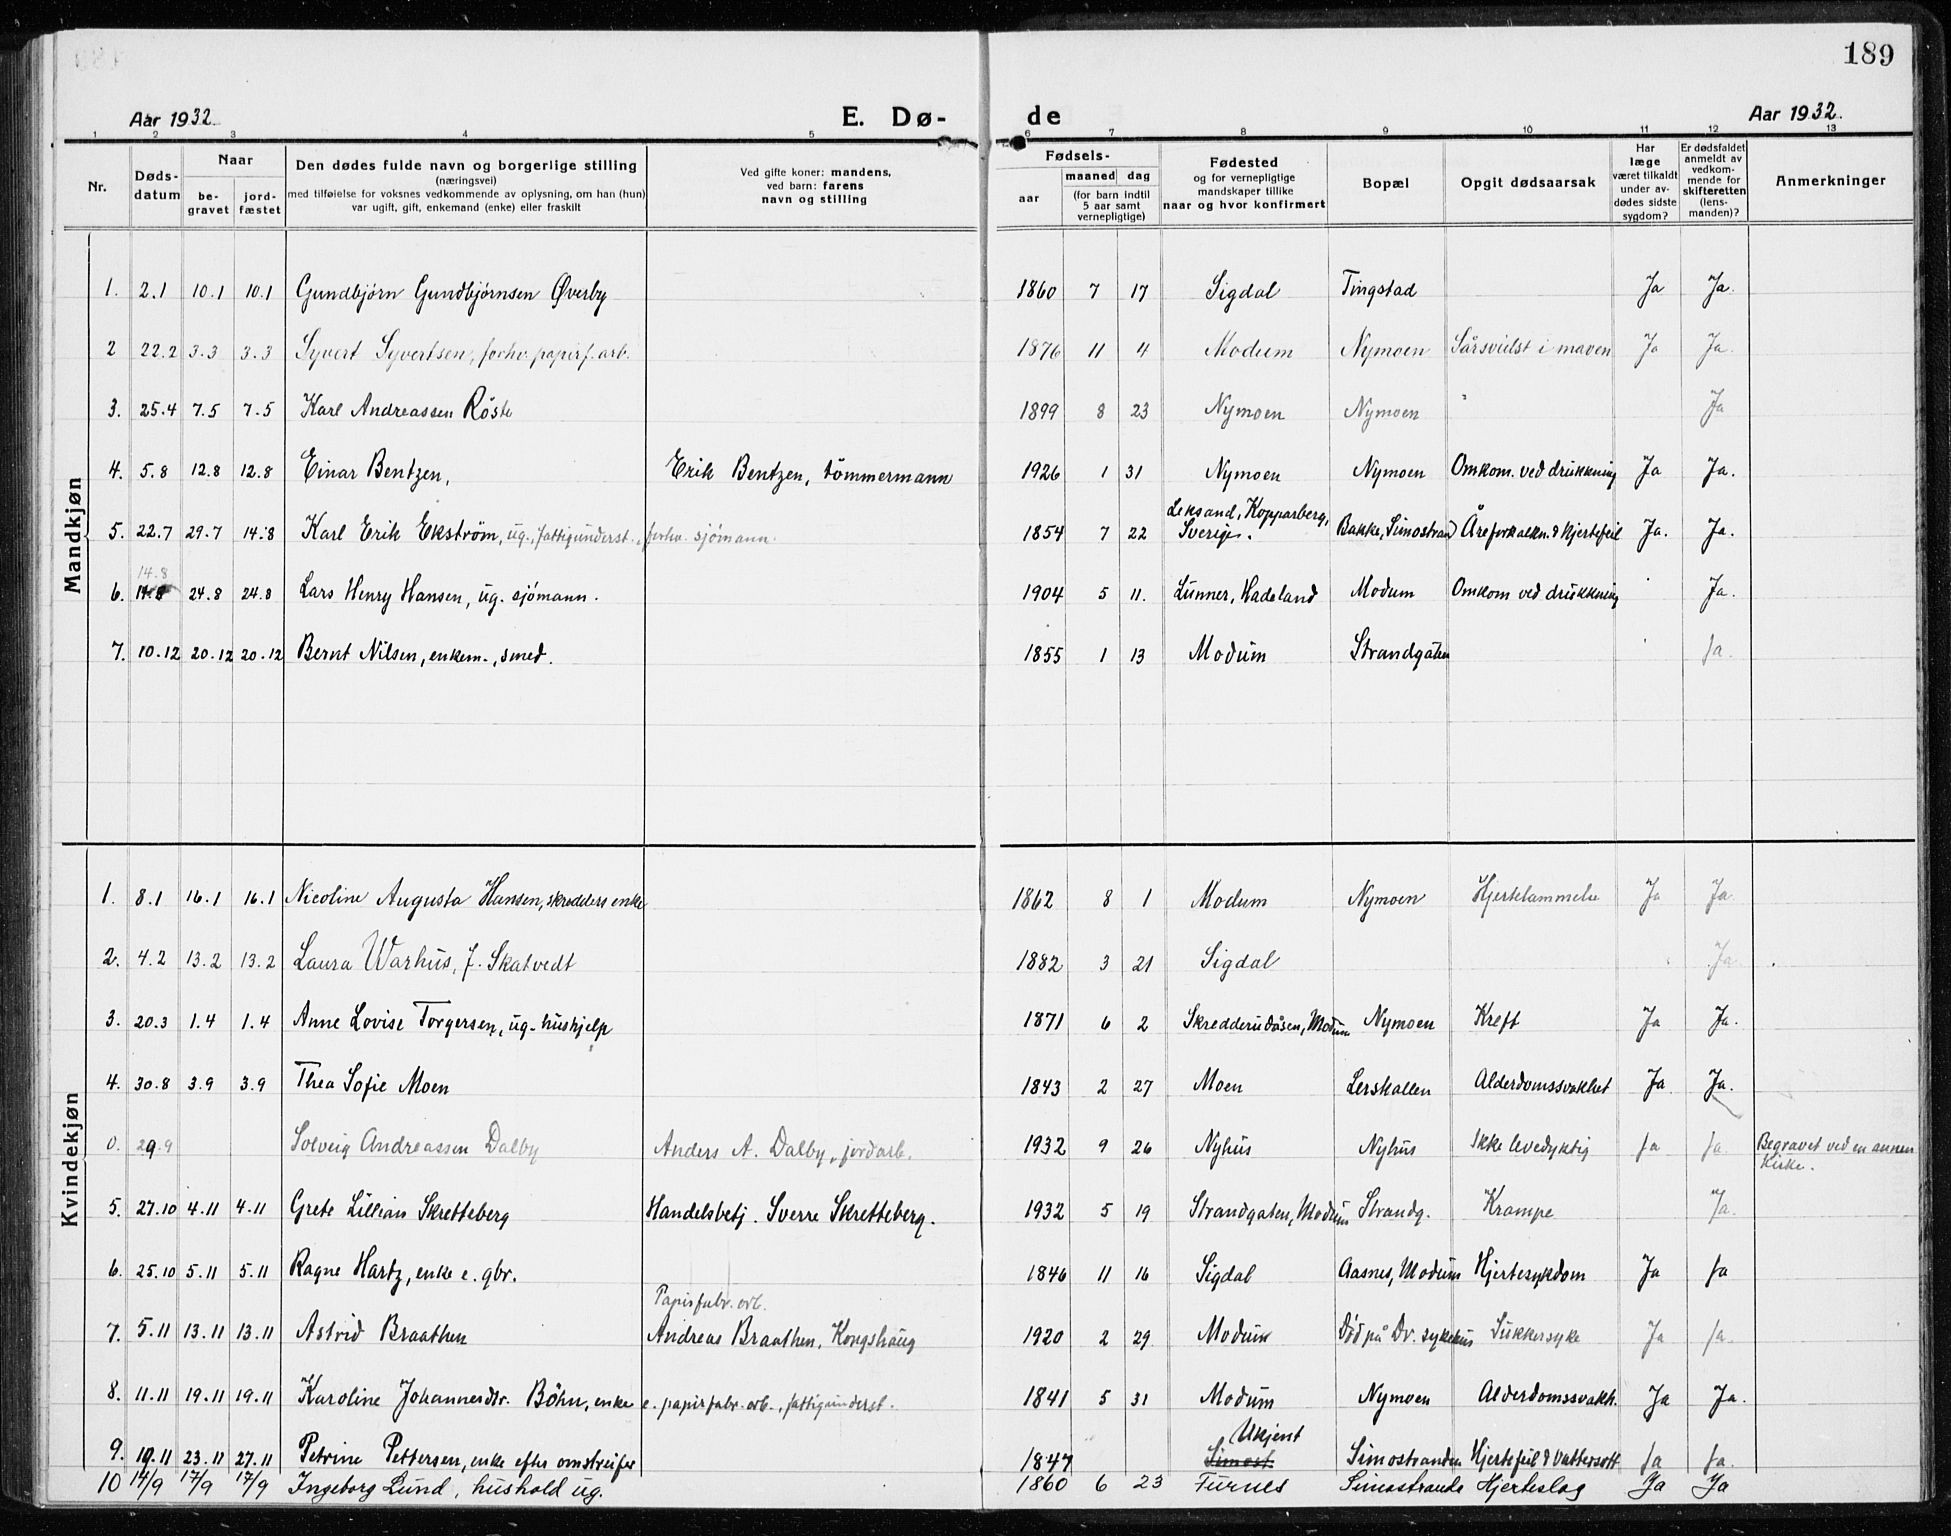 189
Aar 1932. E. Dø- de Aar 1932.
1 2 3 4 5 6 7 8 9 10 11 12 13
Nr. Døds-datum Naar be-gravet jord-fæstet Den dødes fulde navn og borgerlige stilling (næringsvei) med tilføielse for voksnes vedkommende av oplysning, om han (hun) var ugift, gift, enkemand (enke) eller fraskilt Ved gifte koner: mandens, ved barn: farens navn og stilling Fødsels- aar maaned dag (for barn indtil 5 aar samt vernepligtige) Fødested og for vernepligtige mandskaper tillike naar og hvor konfirmert Bopæl Opgit dødsaarsak Har læge været tilkaldt under av-dødes sidste sygdom? Er dødsfaldet anmeldt av vedkom-mende for skifteretten (lens-manden)? Anmerkninger
Mandkjøn
1. 2.1 10.1 10.1 Gundbjørn Gundbjørnsen Øverby 1860 7 17 Sigdal Tingstad Ja Ja.
2 22.2 3.3 3.3 Syvert Syvertsen, forhv. papirf. arb. 1876 11 4 Modum Nymoen Sårsvulst i maven Ja Ja.
3. 25.4 7.5 7.5 Karl Andreassen Röste 1899 8 23 Nymoen Nymoen " Ja
4. 5.8 12.8 12.8 Einar Bentzen, Erik Bentzen, tömmermann 1926 1 31 Nymoen Nymoen Omkom. ved drukkning Ja Ja.
5. 22.7 29.7 14.8 Karl Erik Ekström, ug., fattigunderst., forhv. sjömann. 1854 7 22 Leksand, Kopparberg, Sverige. Bakke, Simostrand Åreforkalkn. & hjertefeil Ja. Ja.
14.8
6. 14.8 24.8 24.8 Lars Henry Hansen, ug. sjómann. 1904 5 11. Lunner, Hadeland Modum Omkom ved drukkning Ja.
7. 10.12 20.12 20.12 Bernt Nilsen, enkem., smed. 1855 1 13 Modum Strandgaten Ja.
Kvindekjøn
1. 8.1 16.1 16.1 Nicoline Augusta Hansen, skredders enke 1862 8 1 Modum Nymoen Hjertelammelse Ja Ja.
2. 4.2 13.2 13.2 Laura Warhus, f. Skatvedt 1882 3 21 Sigdal Ja
3. 20.3 1.4 1.4 Anne Lovise Torgersen, ug. hushjelp 1871 6 2 Skredderudåsen, Modum Nymoen Kreft Ja Ja.
4. 30.8 3.9 3.9 Thea Sofie Moen 1843 2 27 Moen Lerskallen Alderdomssvakhet Ja Ja.
0. 29.9 Solveig Andreassen Dalby Anders A. Dalby, jordarb. 1932 9 26 Nyhus Nyhus Ikke levedyktig Ja Ja. Begravet ved en annen kirke.
5. 27.10 4.11 4.11 Grete Lillian Skretteberg Handelsbetj. Sverre Skretteberg. 1932 5 19 Strandgaten, Modum Strandg. Krampe Ja.
6. 25.10 5.11 5.11 Ragne Hartz, enke e. gbr. 1846 11 16 Sigdal Aasnes, Modum Hjertesykdom Ja Ja
Papirfabr. arb.
7. 5.11 13.11 13.11 Astrid Braathen Andreas Braathen, Kongshaug 1920 2 29 Modum Död på Dr. sykehus Sukkersyke Ja Ja.
8. 11.11 19.11 19.11 Karoline Johannesdtr. Böhn, enke e. papirfabr. arb., fattigunderst. 1841 5 31 Modum Nymoen Alderdomssvakh. Ja Ja.
Ukjent
9. 19.11 23.11 27.11 Petrine Pettersen, enke efter omstreifer 1847 Simost. Simostranden Hjertefeil & Vattersott Ja Ja.
10 14/9 17/9 17/9 Ingeborg Lund, hushold ug. 1860 6 23 Furnes Simostrand Hjerteslag Ja Ja